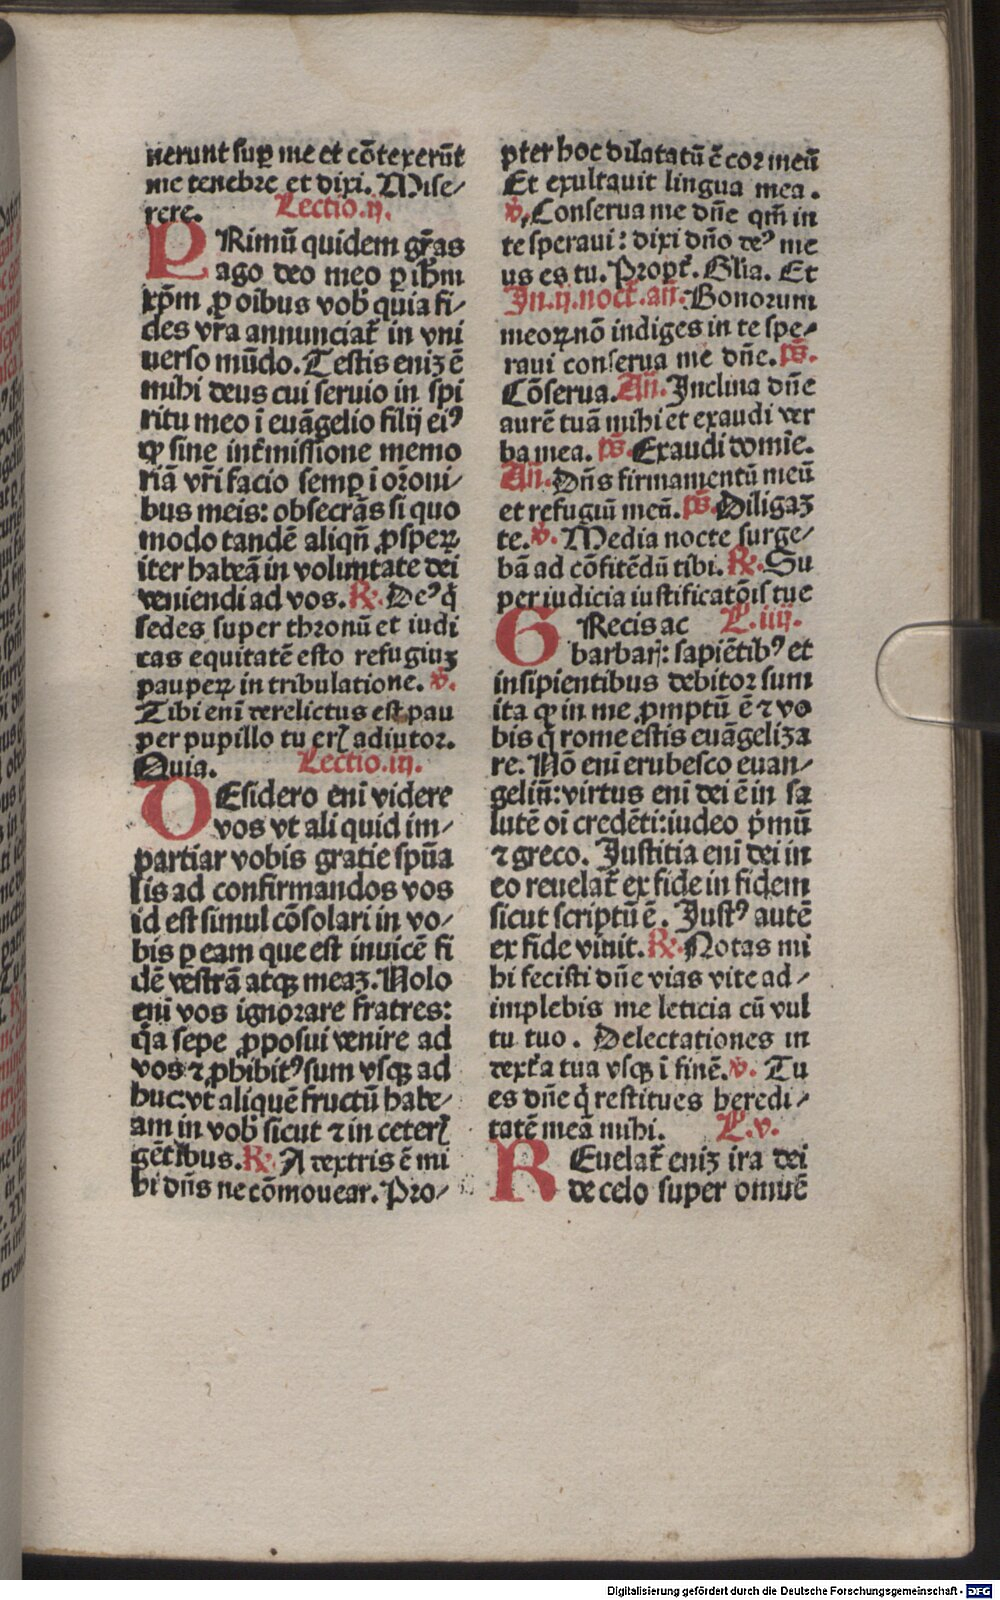 nerunt sup̱ me et cōtexerūt
me tenebre et dixi. Mise⸗
rere. Lectio.ij.
PRimū quidem gr̄as
ago deo meo ꝑ ih̄m
xp̄m ꝓ oībus vob̄ quia fi⸗
des vr̄a annunciat̄ in vni
uerso mūdo. Testis eniꝫ ē
mihi deus cui seruio in spi
ritu meo ī euāgelio filij ei⁹
ꝙ sine int̄missione memo
riā vr̄i facio semꝑ ī orōni⸗
bus meis: obsecrās si quo
modo tandē aliqn̄ ꝓspeꝝ
iter habeā in voluntate dei
veniendi ad vos. ℞. De⁹ q̄
sedes super thronū et iudi
cas equitatē esto refugiuꝫ
pauperꝝ in tribulatione. ℣.
Tibi enī derelictus est pau
per pupillo tu erꝭ adiutor.
Quia. Lectio.iij.
DEsidero enī videre
vos vt ali quid im⸗
partiar vobis gratie spūa
lis ad confirmandos vos
id est simul cōsolari in vo⸗
bis ꝑ eam que est inuicē fi
dē vestrā atqꝫ meaꝫ. Nolo
enī vos ignorare fratres:
q̄a sepe ꝓposui venire ad
vos ⁊ ꝓhibit⁹ sum vsqꝫ ad
huc: vt aliquē fructū habe⸗
am in vob̄ sicut ⁊ in ceterꝭ
gētibus. ℞. A dextris ē mi
hi dn̄s ne cōmouear. Pro⸗
pter hoc dilatatū ē cor meū
Et exultauit lingua mea.
℣. Conserua me dn̄e qm̄ in
te speraui: dixi dn̄o de⁹ me
us es tu. Propt̄. Glia. Et
In.ij.noct̄.an̄. Bonorum
meoꝝ nō indiges in te spe⸗
raui conserua me dn̄e. ps̄.
Cōserua. An̄. Inclina dn̄e
aurē tuā mihi et exaudi ver
ba mea. ps̄. Exaudi domīe.
An̄. Dn̄s firmamentū meū
et refugiū meū. ps̄. Diligaꝫ
te. ℣. Media nocte surge⸗
bā ad cōfitēdū tibi. ℞. Su
per iudicia iustificatōis tue
GRecis ac L̄.iiij.
barbarꝭ: sapiētib⁹ et
insipientibus debitor sum
ita ꝙ in me ꝓmptū ē ⁊ vo
bis q̄ rome estis euāgeliza
re. Nō enī erubesco euan⸗
geliū: virtus enī dei ē in sa
lutē oī credēti: iudeo p̄mū
⁊ greco. Iustitia enī dei in
eo reuelat̄ ex fide in fidem
sicut scriptū ē. Iust⁹ autē
ex fide viuit. ℞. Notas mi
hi fecisti dn̄e vias vite ad⸗
implebis me leticia cū vul
tu tuo. Delectationes in
dext̄a tua vsqꝫ ī finē. ℣. Tu
es dn̄e q̄ restitues heredi⸗
tatē meā mihi. L̄.v.
REuelat̄ eniꝫ ira dei
de celo super omnē
Digitalisierung gefördert durch die Deutsche Forschungsgemeinschaft - DFG